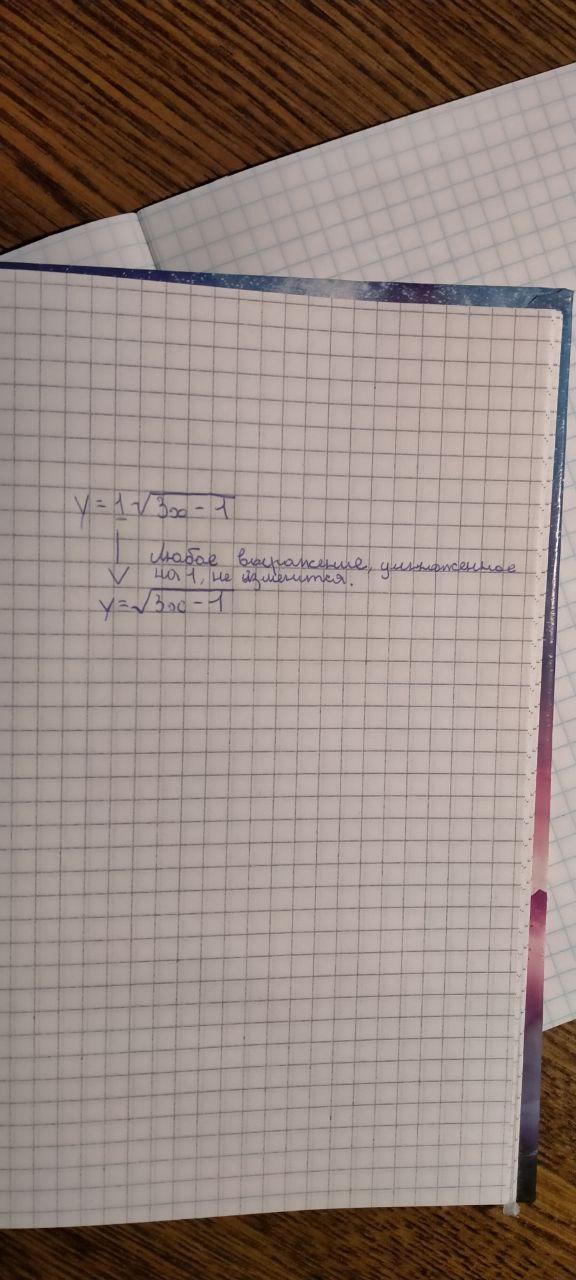 y = 1 √3x - 1
Любое выражение, умноженное
на 1, не изменится.
y = √3x - 1